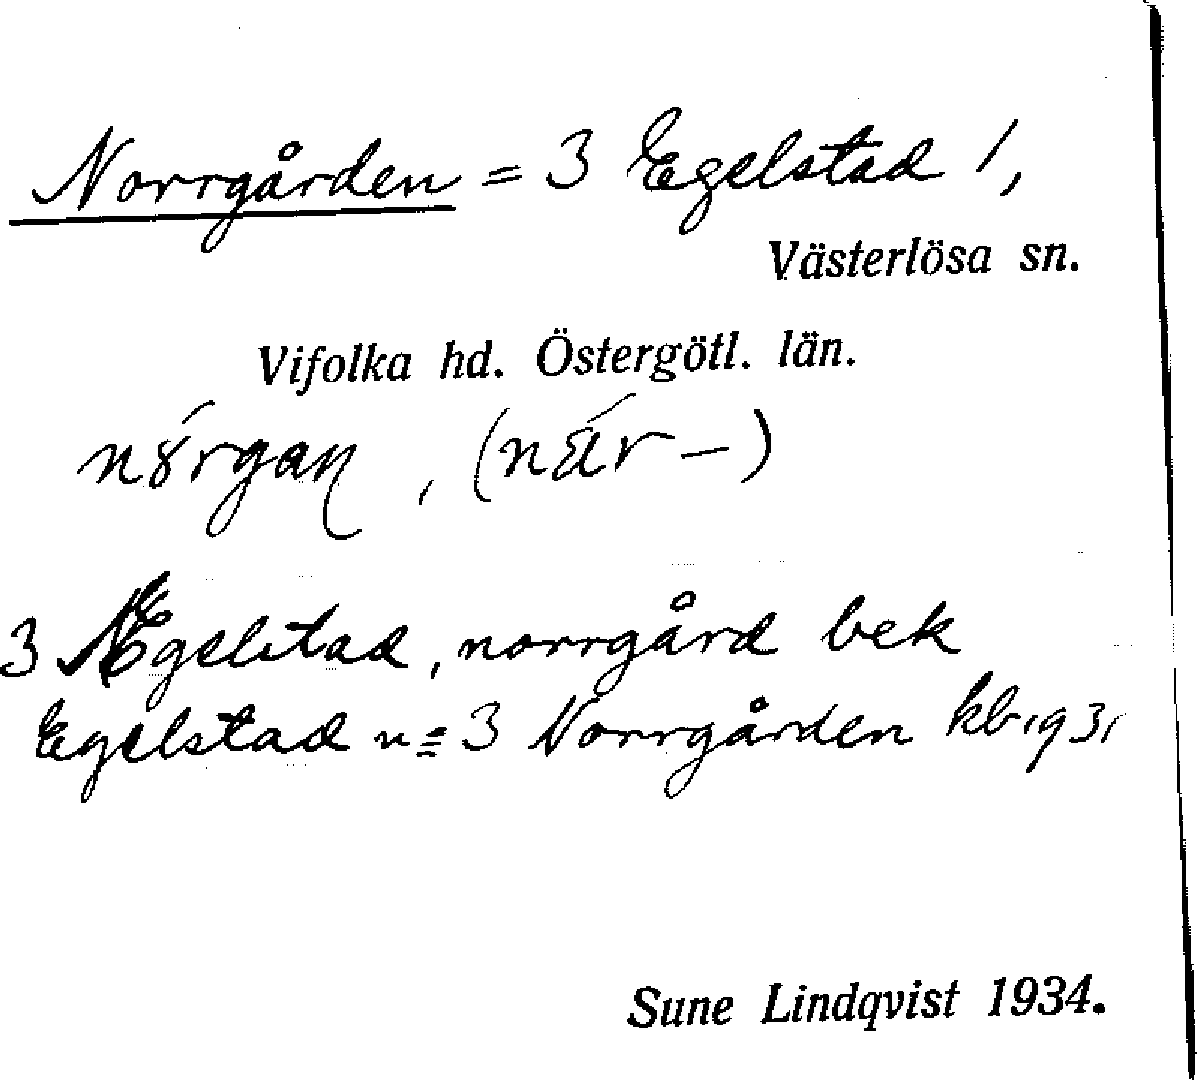 Norrgården = 3 Egelstad 1,
Västerlösa sn.
Vifolka hd. Östergötl. län.
, (när – )
3 Egelstad, norrgård bek
Egelstad n = 3 Norrgården kb. 1931
Sune Lindqvist 1934.